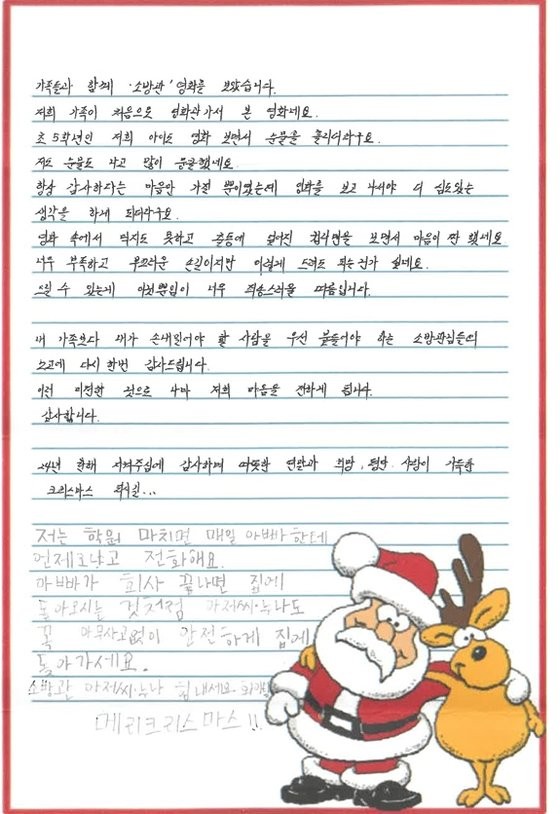 가족들과 함께 '소방관' 영화를 보았습니다.
저희 가족이 처음으로 영화관가서 본 영화네요.
초5학년인 저희 아이도 영화 보면서 눈물을 흘리더라구요.
저도 눈물도 나고 많이 뭉클했네요.
항상 감사하다는 마음만 가질 뿐이였는데 영화를 보고 나서야 더 심도있는
생각을 하게 되더라구요.
영화 속에서 먹지도 못하고 퉁퉁에 불어진 컵라면을 보면서 마음이 짠했네요
너무 부족하고 부끄러운 손길이지만 이렇게 드려도 되는건가 싶네요.
드릴 수 있는게 이것뿐임이 너무 죄송스러울 따름입니다.
내 가족보다 내가 손내밀어야 할 사람을 우선 붙들어야 하는 소방관님들의
노고에 다시 한번 감사드립니다.
이런 미천한 것으로 나마 저희 마음을 전하게 됩니다.
감사합니다.
24년 한해 지켜주심에 감사하며 따뜻한 연말과 희망, 평안, 사랑이 가득한
크리스마스 되시길...
저는 학원 마치면 매일 아빠한테
언제오냐고 전화해요.
아빠가 회사 끝나면 집에
돌아오시는 것처럼 아저씨·누나도
꼭 아무사고없이 안전하게 집에
돌아가세요.
소방관 아저씨·누나 힘내세요
메리크리스마스!!